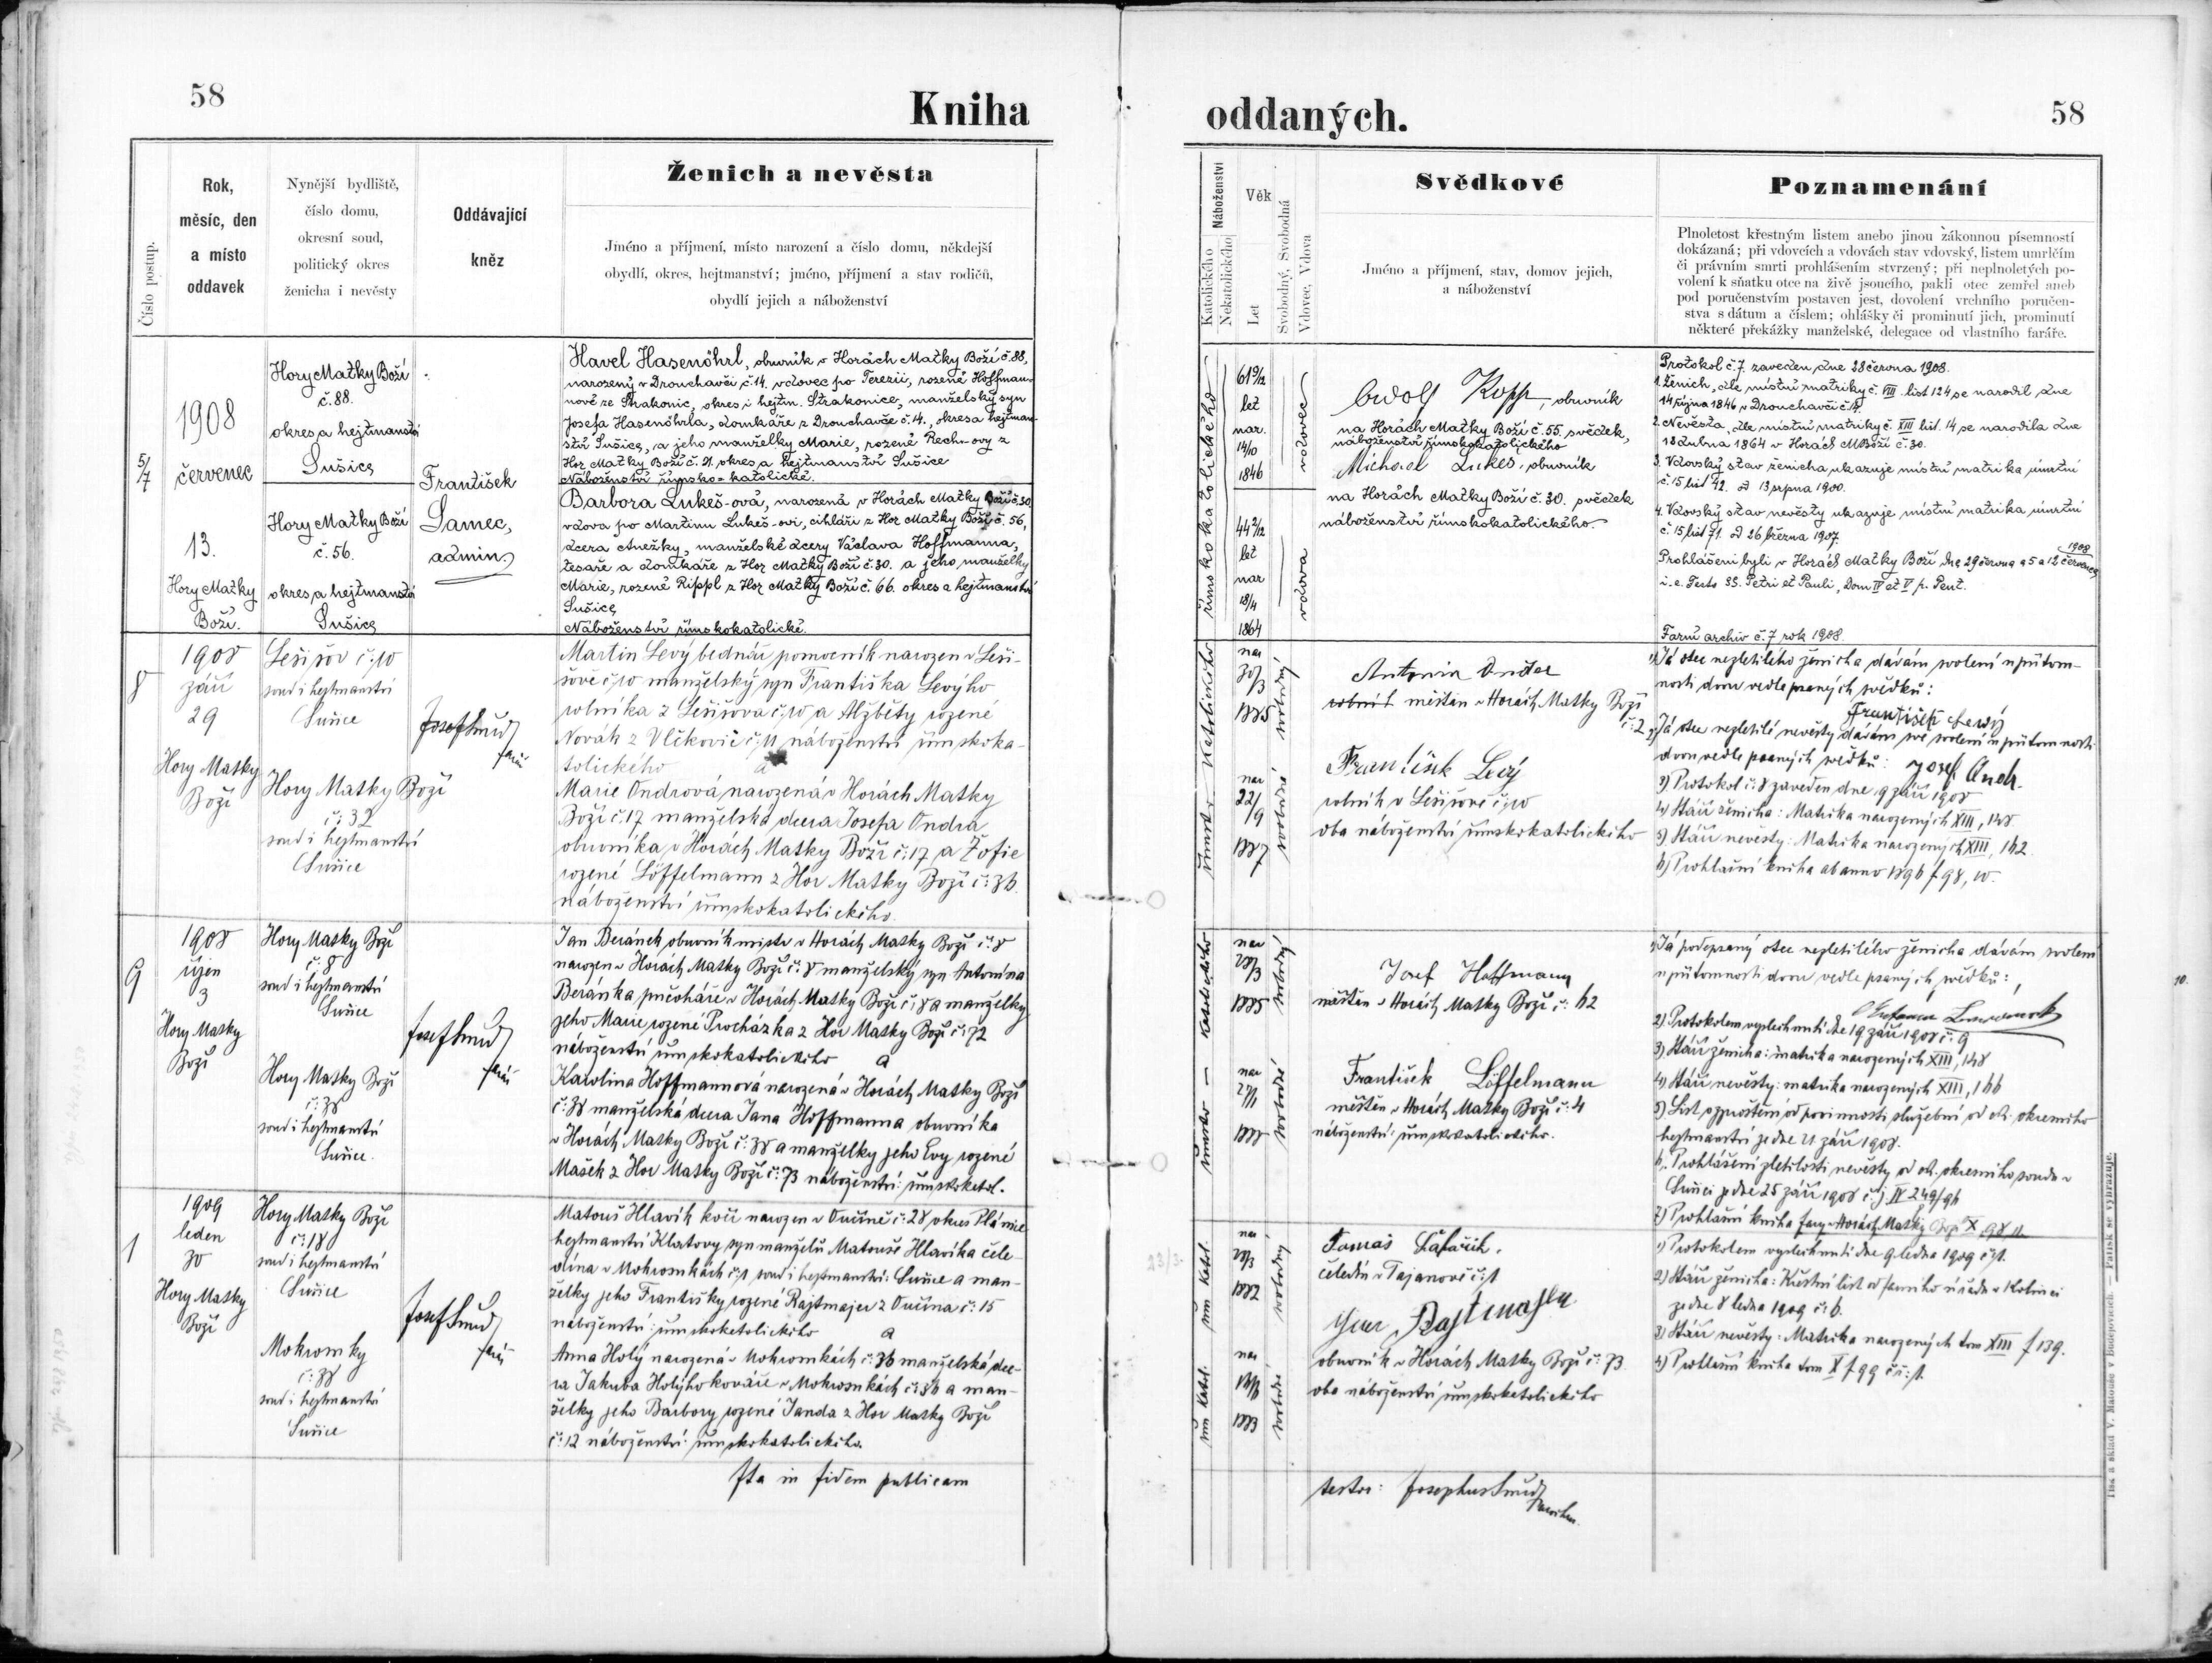 58
Kniha
oddaných.
58
Číslo postup.
Rok,
měsíc, den
a místo
oddavek
Nynější bydliště,
číslo domu,
okresní soud,
politický okres
ženicha i nevěsty
Oddávající
kněz
Ženich a nevěsta
Jméno a příjmení, místo narození a číslo domu, někdejší
obydlí, okres, hejtmanství; jméno, příjmení a stav rodičů,
obydlí jejich a náboženství
Náboženství
Katolického
Nekatolického
Věk
Let
Svobodný, Svobodná
Vdovec, Vdova
Svědkové
Jméno a příjmení, stav, domov jejich,
a náboženství
Poznamenání
Plnoletost křestným listem anebo jinou zákonnou písemností
dokázaná; při vdovcích a vdovách stav vdovský, listem umrlčím
či právním smrti prohlášením stvrzený; při neplnoletých po-
volení k sňatku otce na živě jsoucího, pakli otec zemřel aneb
pod poručenstvím postaven jest, dovolení vrchního poručen-
stva s dátum a číslem; ohlášky či prominutí jich, prominutí
některé překážky manželské, delegace od vlastního faráře.
5/7
1908
červenec
13.
Hory Matky
Boží.
Hory Matky Boží
č. 88.
okres a hejtmanství
Sušice
Hory Matky Boží
č. 56.
okres a hejtmanství
Sušice
František
Samec,
admin.
Havel Hasenöhrl, obuvník v Horách Matky Boží č. 88,
narozený v Drouhavči č. 14. vdovec po Terezii, rozené Hoffman-
nové ze Strakonic, okres i hejtm. Strakonice, manželský syn
Josefa Hasenöhrla, domkáře z Drouhavče č. 14., okresa hejtman-
ství Sušice, a jeho manželky Marie, rozené Rech-ovy z
Hor Matky Boží č. 21. okres a hejtmanství Sušice
Náboženství římsko-katolické.
Barbora Lukeš-ová, narozená v Horách Matky Boží č. 30,
vdova po Martinu Lukeš-ovi, cihláři z Hor Matky Boží č. 56,
dcera Anežky, manželské dcery Václava Hoffmanna,
tesaře a domkáře z Hor Matky Boží č. 30. a jeho manželky
Marie, rozené Rippl z Hor Matky Boží č. 66. okres a hejtmanství
Sušice
Náboženství římskokatolické.
římskokatolického
61 9/12
let
nar.
14/10
1846
vdovec
44 2/12
let
nar
18/4
1864
vdova
Adolf Kopp, obuvník
na Horách Matky Boží č. 55. svědek,
náboženství římskokatolického
Michael Lukeš, obuvník
na Horách Matky Boží č. 30. svědek
náboženství římskokatolického.
Protokol č. 7. zaveden dne 28 června 1908.
1. Ženich, dle místní matriky č. VIII list 124 se narodil dne
14 října 1846 v Drouhavči č. 14.
2. Nevěsta, dle místní matriky č. XIII list. 14 se narodila dne
18 dubna 1864 v Horách M Boží č. 30.
3. Vdovský stav ženicha ukazuje místní matrika úmrtní
č. 15 list 42. d 13 srpna 1900.
4. Vdovský stav nevěsty ukazuje místní matrika úmrtní
č. 15 list 71. d 26 března 1907.
1908
Prohlášeni byli v Horách Matky Boží dne 29 června a 5 a 12 července
i. e. Festo SS. Petri et Pauli, Dom IV et V p. Pent.
Farní archiv č. 7 rok 1908.
8
1908
září
29
Hory Matky
Boží
Lešišov č: 10
soud i hejtmanství
Sušice
Hory Matky Boží
č: 32
soud i hejtmanství
Sušice
Josef
farář
Martin Levý bednář pomocník narozen v Leši-
šově č: 10 manželský syn Františka Levýho
rolníka z Lešišova č: 10 a Alžběty rozené
Novák z Vlčkovic č: 11 náboženství římskoka-
tolického
a
Marie Ondrová narozená v Horách Matky
Boží č: 17 manželská dcera Josefa Ondra
obuvníka v Horách Matky Boží č: 17 a Žofie
rozené Löffelmann z Hor Matky Boží č: 36.
náboženství římskokatolického.
římsko katolického
nar
30/3
1885
svobodný
nar
22/9
1887
svobodná
Antonín
rolník měštan v Horách Matky Boží
č: 2
František Levý
rolník v Lešišově č: 10
oba náboženství římskokatolického
1) Já otec nezletilého ženicha dávám svolení u přítom-
nosti dvou vedle psaných svědků:
František Levý
2) Já otec nezletilé nevěsty dávám své svolení u přítomnosti
dvou vedle psaných svědků: Josef Ondr.
3) Protokol č: 8 zaveden dne 19 září 1908
4) Stáří ženicha: Matrika narozených XIII, 148
5) Stáří nevěsty: Matrika narozených XIII, 162
6) Prohlašní kniha ab anno 1896 f 98, 10.
9
1908
říjen
3
Hory Matky
Boží
Hory Matky Boží
č: 8
soud i hejtmanství
Sušice
Hory Matky Boží
č: 38
soud i hejtmanství
Sušice.
Josef
farář
Jan Beránek obuvník mistr v Horách Matky Boží č: 8
narozen v Horách Matky Boží č: 8 manželský syn Antonína
Beránka punčoháře v Horách Matky Boží č: 8 a manželky
jeho Marie rozené Procházka z Hor Matky Boží č: 72
náboženství římskokatolického
a
Karolina Hoffmannová narozená v Horách Matky Boží
č: 38 manželská dcera Jana Hoffmanna obuvníka
v Horách Matky Boží č: 38 a manželky jeho Evy rozené
Mašek z Hor Matky Boží č: 73 náboženství: římskokatol.
římsko — katolického
nar
28/3
1885
svobodný
nar
27/1
1888
svobodná
Josef Hoffmann
měštan v Horách Matky Boží č: 62
František Löffelmann
měštan v Horách Matky Boží č: 4
náboženství: římskokatolického.
1) Já podepsaný otec nezletilého ženicha dávám svolení
u přítomnosti dvou vedle psaných svědků:
2) Protokolem vyslechnuti dne 19 září 1908 č: 9
3) Stáří ženicha: matrika narozených XIII, 148
4) Stáří nevěsty: matrika narozených XIII, 166
5) List o sproštění od povinnosti služební od ck. okresního
hejtmanství ze dne 21 září 1908.
6. Prohlášení zletilosti nevěsty od ck. okresního soudu v
Sušici ze dne 25 září 1908 č: j IV 249/96
7) Prohlašní kniha fary v Horách Matky Boží X 98 11.
10.
1
1909
leden
30
Hory Matky
Boží
Hory Matky Boží
č: 18
soud i hejtmanství
Sušice
Mokrosuky
č: 38
soud i hejtmanství
Sušice
Josef
farář
Matouš Hlavík kočí narozen v Oučíně č: 28 okres Plánice
hejtmanství Klatovy syn manželů Matouše Hlavíka čele-
dína v Mokrosukách č: 1 soud i hejtmanství: Sušice a man-
želky jeho Františky rozené Rajtmajer z Oučína č: 15
náboženství: římskokatolického
a
Anna Holý narozená v Mokrosukách č: 36 manželská dce-
ra Jakuba Holýho kováře v Mokrosukách č: 36 a man-
želky jeho Barbory rozené Janda z Hor Matky Boží
č: 12 náboženství: římskokatolického.
řím katol.
nar
28/3
1882
svobodný
řím katol.
nar
1883
svobodná
Tomáš
čeledín v Tajanově č: 1
Rajtmajer
obuvník v Horách Matky Boží č: 73.
oba náboženství římskokatolického
1) Protokolem vyslechnuti dne 9 ledna 1909 č: 1.
2) Stáří ženicha: Křestní list od farního úřadu v Kolinci
ze dne 8 ledna 1909 č: 6.
3) Stáří nevěsty: Matrika narozených tom XIII f 139.
4) Prohlašní kniha tom X f 99 č: 1.
Ita in fidem publicam
testor: Josephus
parochus.
Tisk a sklad V. Matouše v Budějovicích. — Patisk se vyhrazuje.